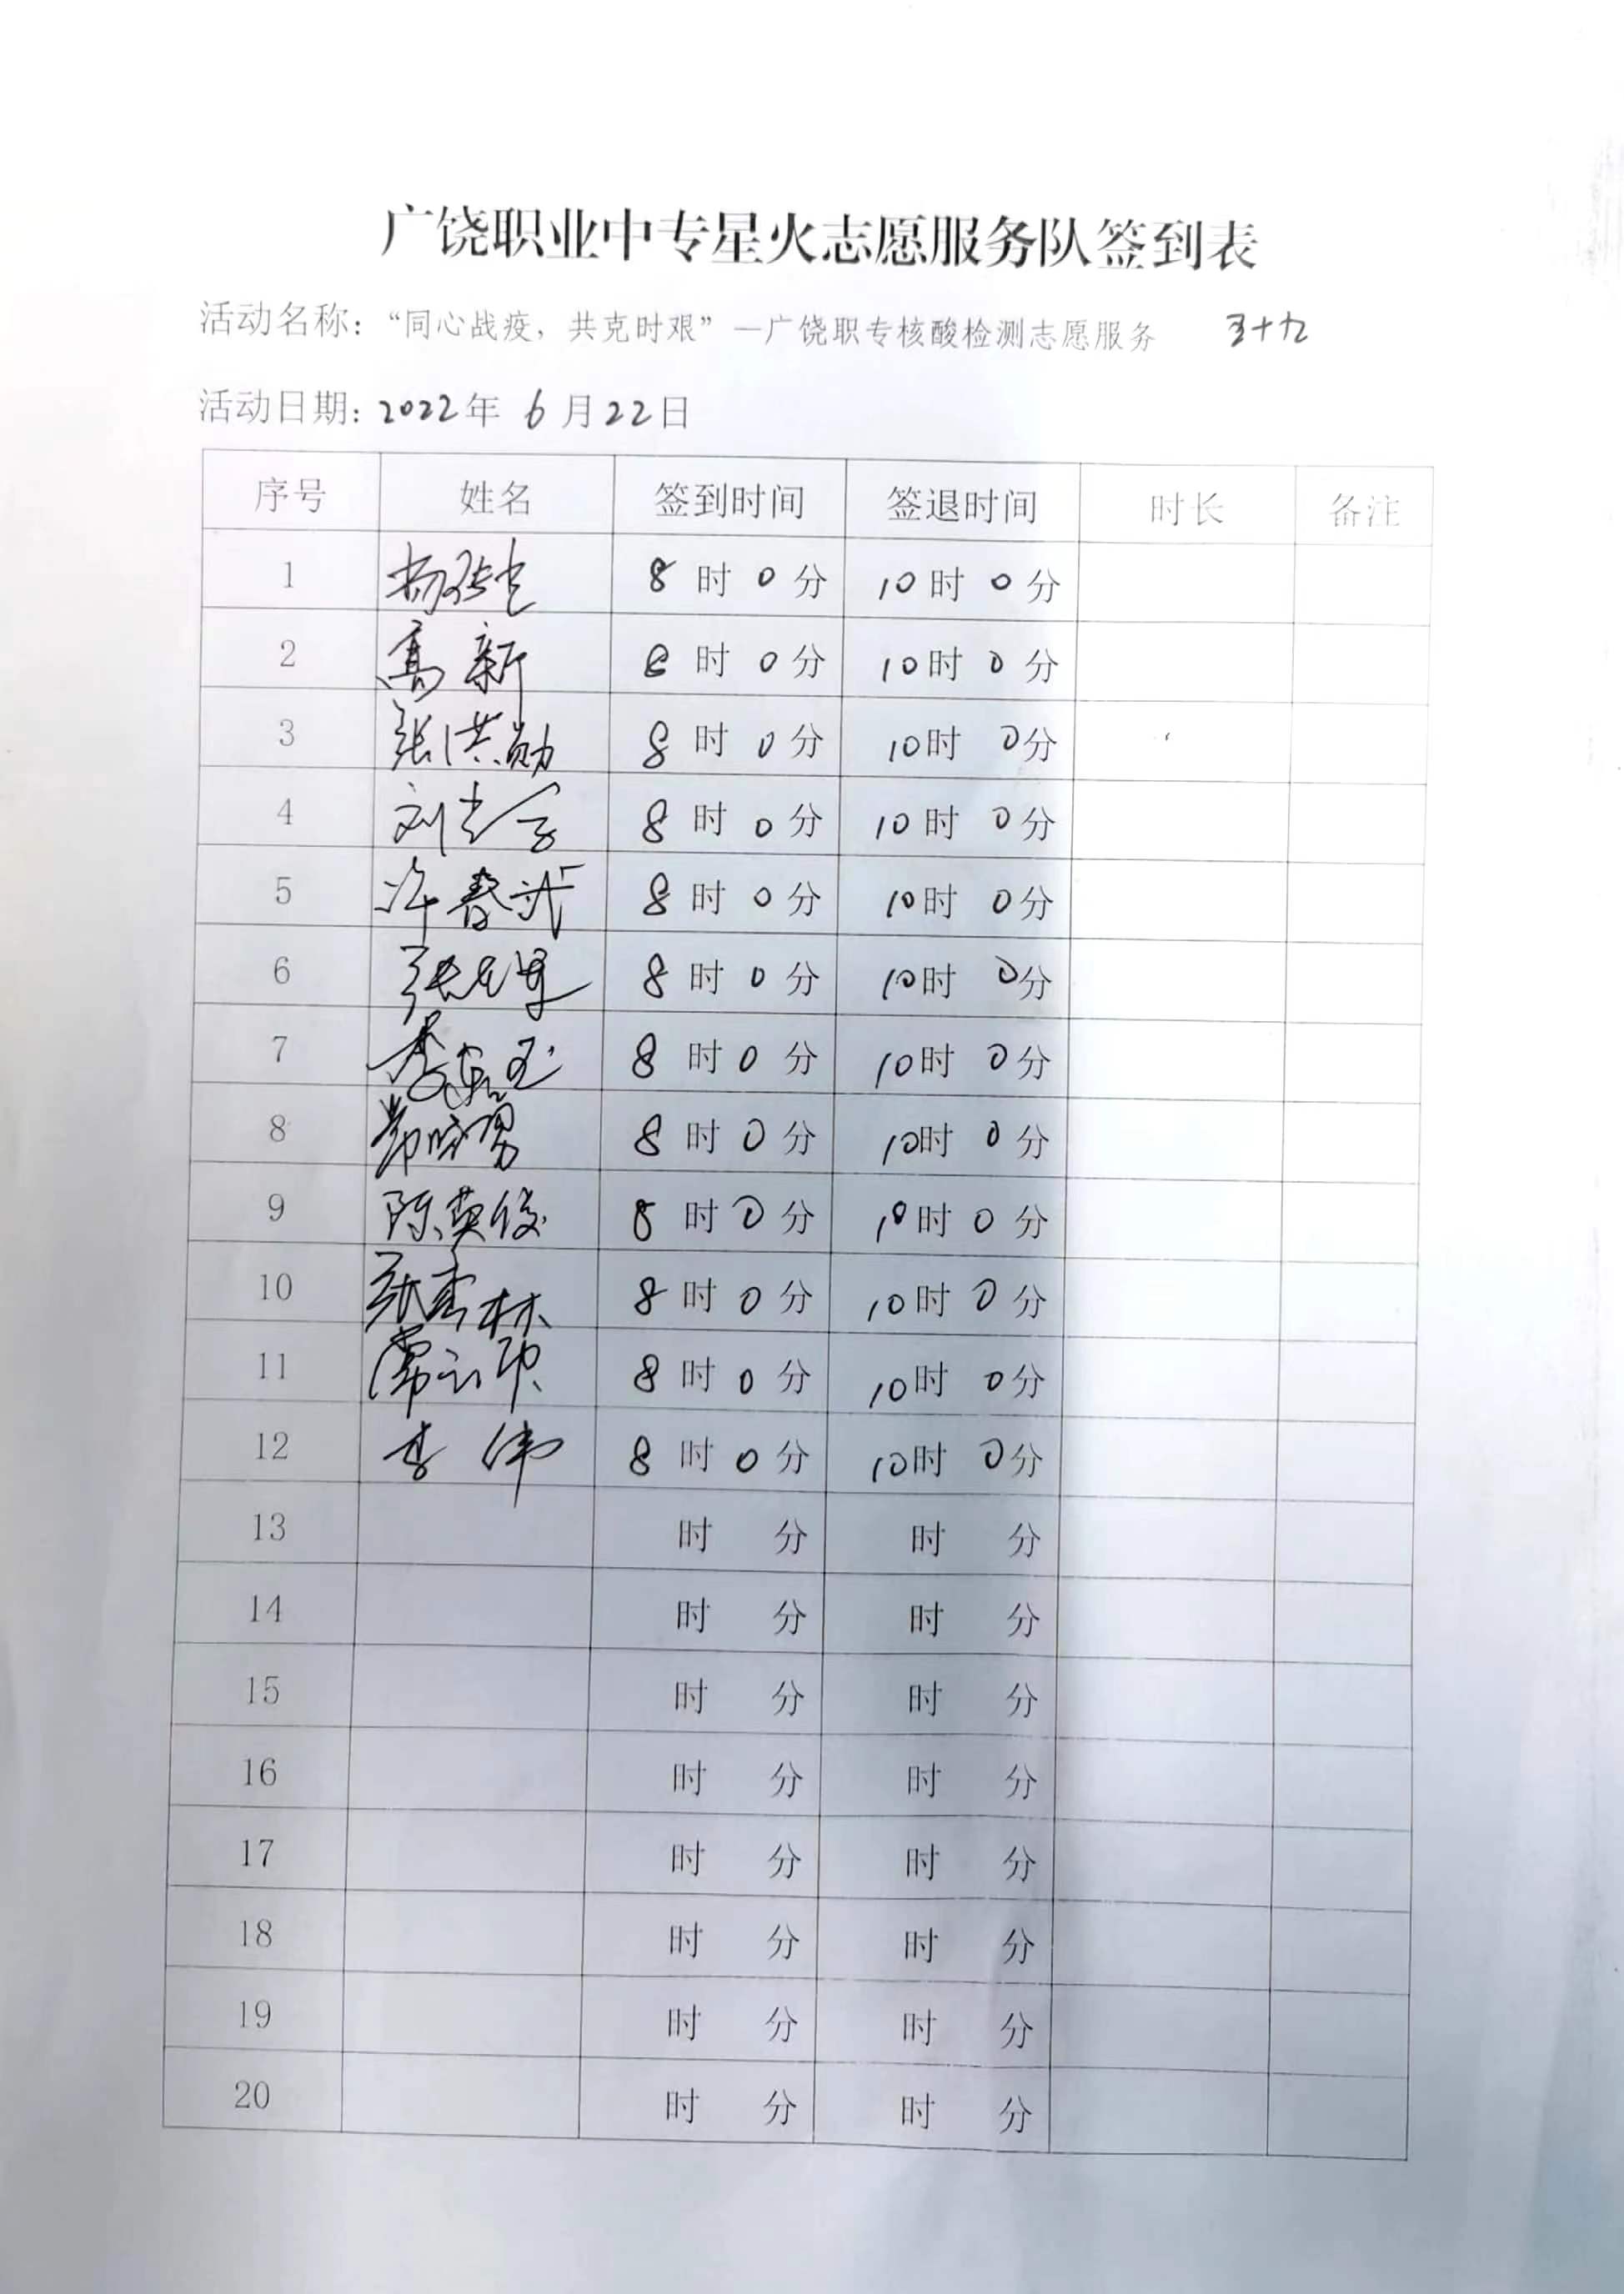 广饶职业中专星火志愿服务队签到表
活动名称：“同心战疫，共克时艰”—广饶职专核酸检测志愿服务 五十九
活动日期：2022年 6月22日
序号 姓名 签到时间 签退时间 时长 备注
1 8时0分 10时0分
2 高新 8时0分 10时0分
3 张洪勋 8时0分 10时0分
4 8时0分 10时0分
5 许春武 8时0分 10时0分
6 8时0分 10时0分
7 8时0分 10时0分
8 8时0分 10时0分
9 陈英俊 8时0分 10时0分
10 8时0分 10时0分
11 8时0分 10时0分
12 李伟 8时0分 10时0分
13 时 分 时 分
14 时 分 时 分
15 时 分 时 分
16 时 分 时 分
17 时 分 时 分
18 时 分 时 分
19 时 分 时 分
20 时 分 时 分